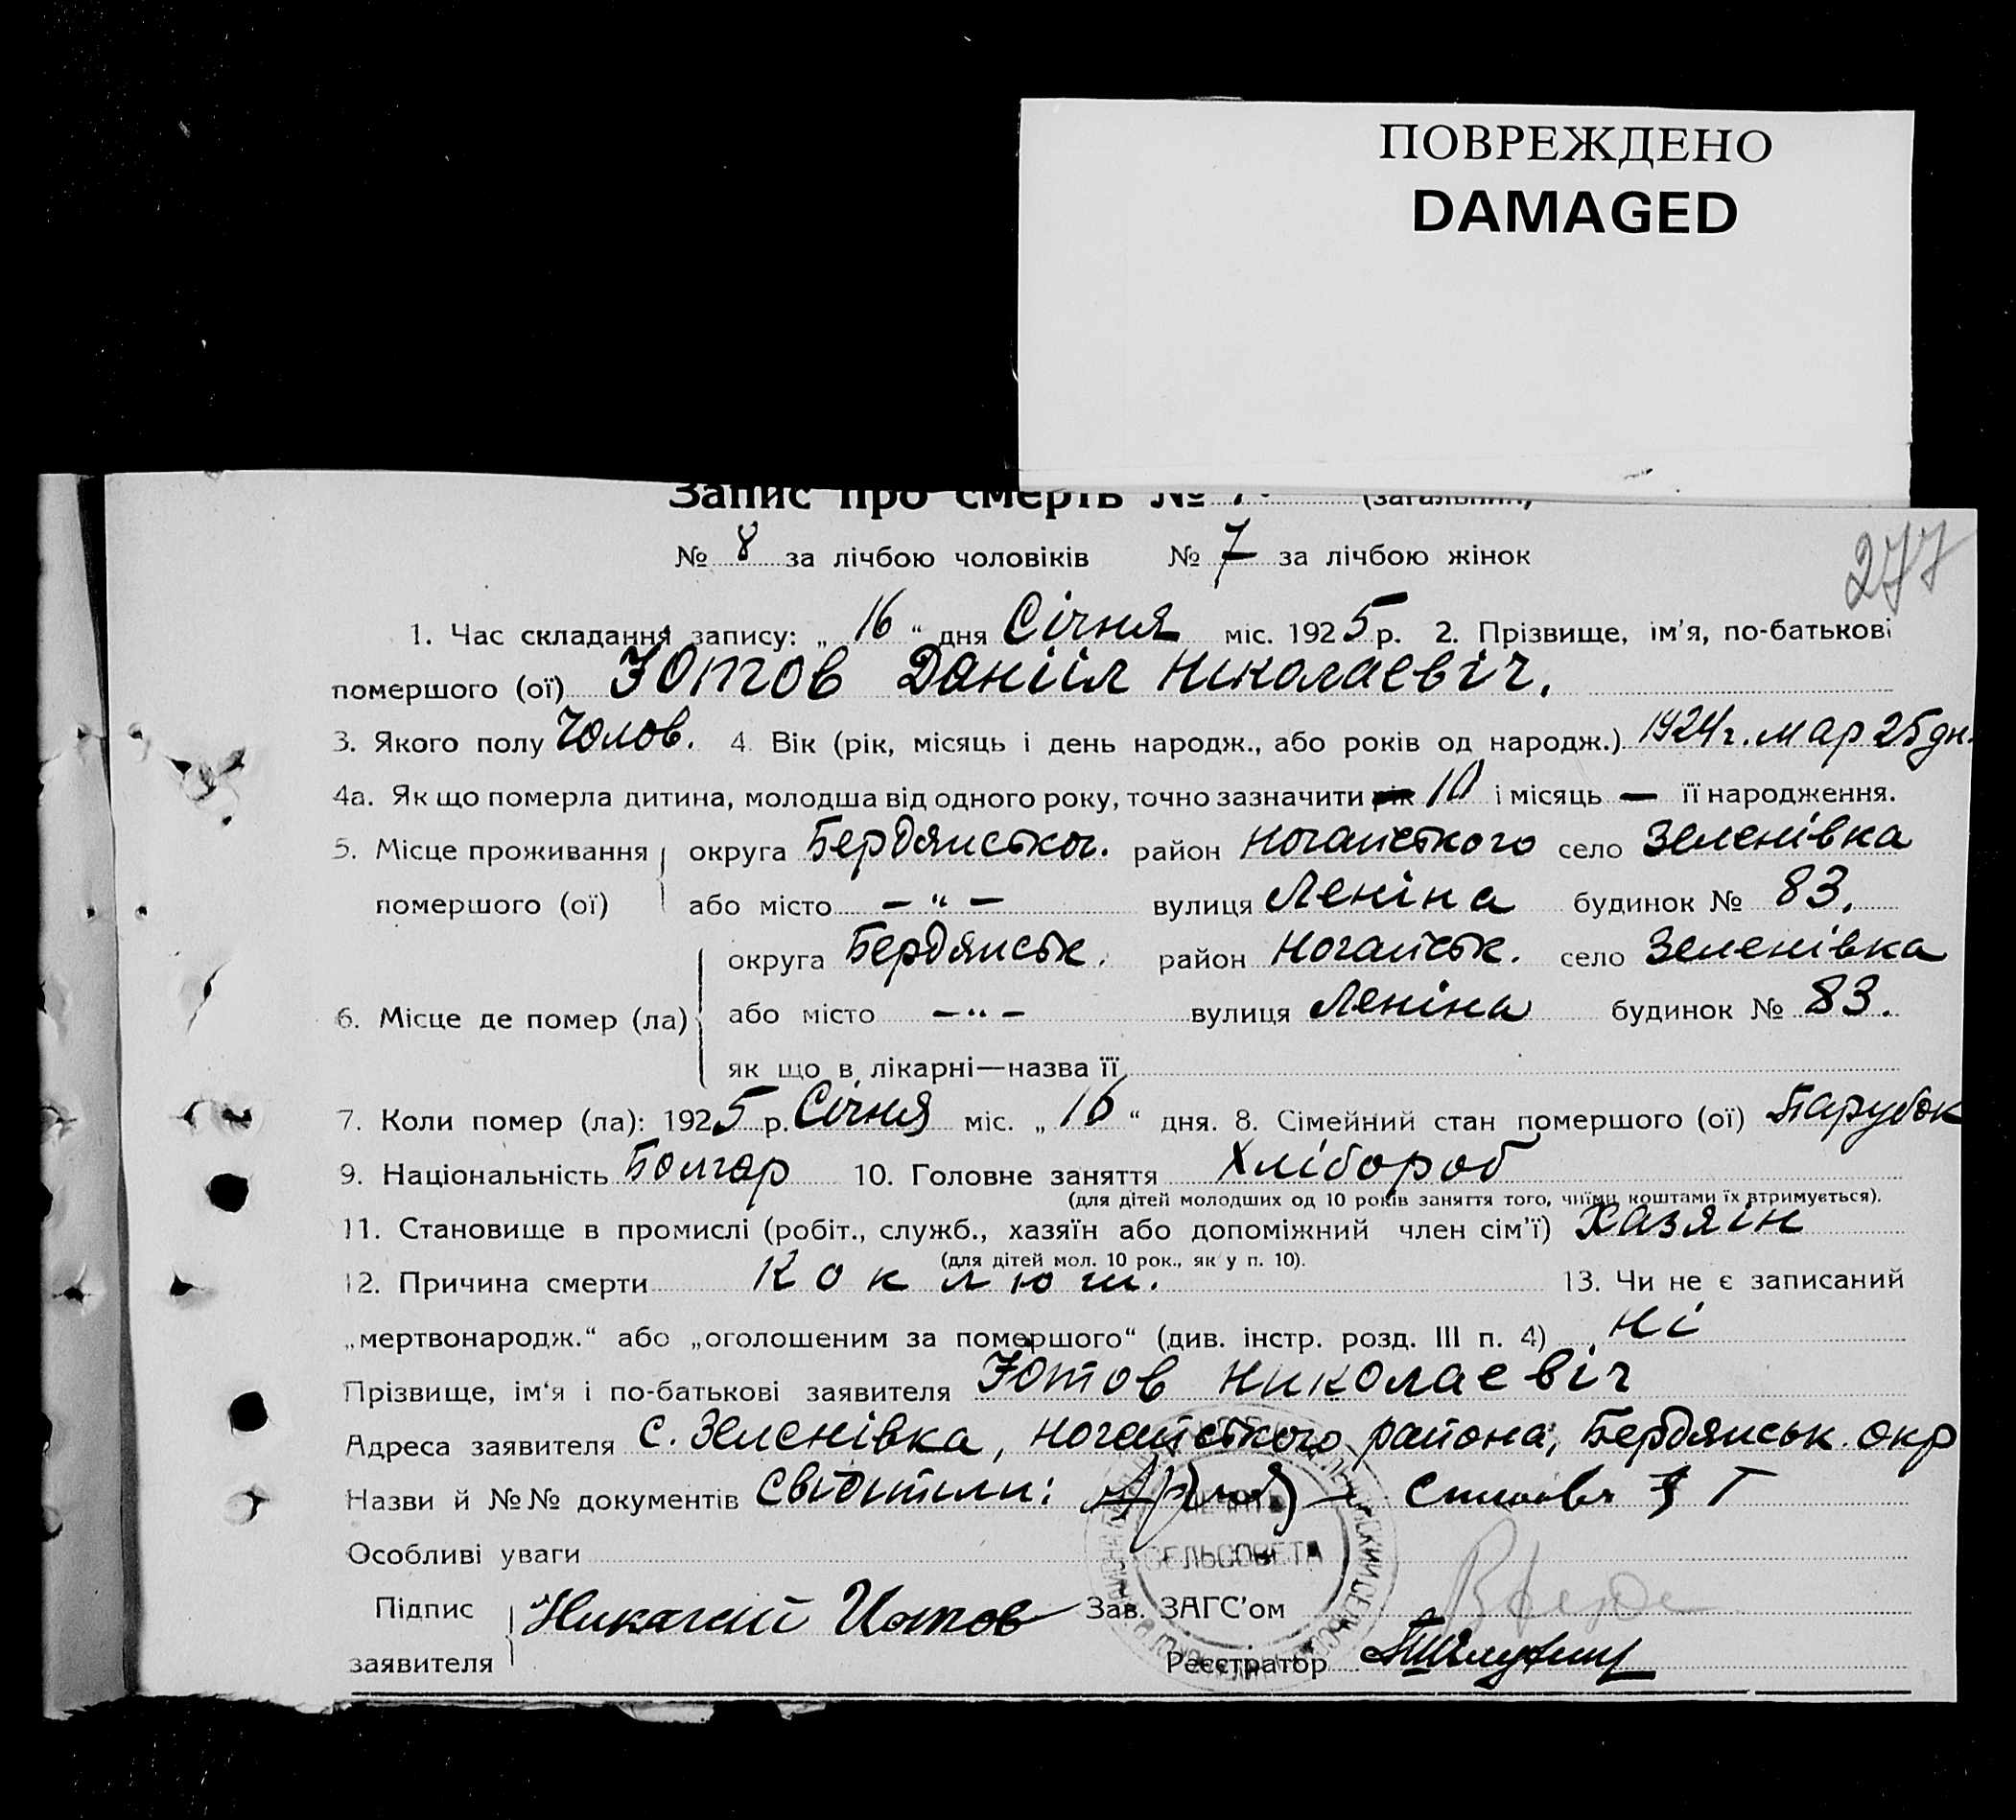 ПОВРЕЖДЕНО
DAMAGED
Запис про смерть № (загальний)
№ 8 за лічбою чоловіків № 7 за лічбою жінок
277
1. Час складання запису: „ 16 “ дня Січня міс. 1925 р. 2. Прізвище, ім'я, по-батькові
помершого (ої) Йотов Данііл Николаевіч.
3. Якого полу Чолов. 4 Вік (рік, місяць і день народж., або років од народж.) 1924 г. мар 25 дн.
4а. Як що померла дитина, молодша від одного року, точно зазначити рік 10 і місяць — її народження.
5. Місце проживання округа Бердянськог. район Ногайського село Зеленівка
помершого (ої) або місто — " — вулиця Леніна будинок № 83.
округа Бердянськ. район Ногайськ. село Зеленівка
6. Місце де помер (ла) або місто — " — вулиця Леніна будинок № 83.
як що в лікарні—назва її
7. Коли помер (ла): 1925 р. Січня міс. „ 16 “ дня. 8. Сімейний стан помершого (ої) Парубок
9. Національність Болгар 10. Головне заняття Хлібороб
(для дітей молодших од 10 років заняття того, чиїми коштами їх втримується).
11. Становище в промислі (робіт., служб., хазяїн або допоміжний член сім'ї) Хазяін
(для дітей мол. 10 рок., як у п. 10).
12. Причина смерти Коклюш. 13. Чи не є записаний
„мертвонародж.“ або „оголошеним за помершого“ (див. інстр. розд. III п. 4) Ні
Прізвище, ім'я і по-батькові заявителя Йотов Николаевіч
Адреса заявителя с. Зеленівка, Ногайського района, Бердянськ. окр
Назви й №№ документів Свідітили:
Особливі уваги
СЕЛЬСОВЕТА
Підпис Николай Йотов Зав. ЗАГС'ом
заявителя Реєстратор